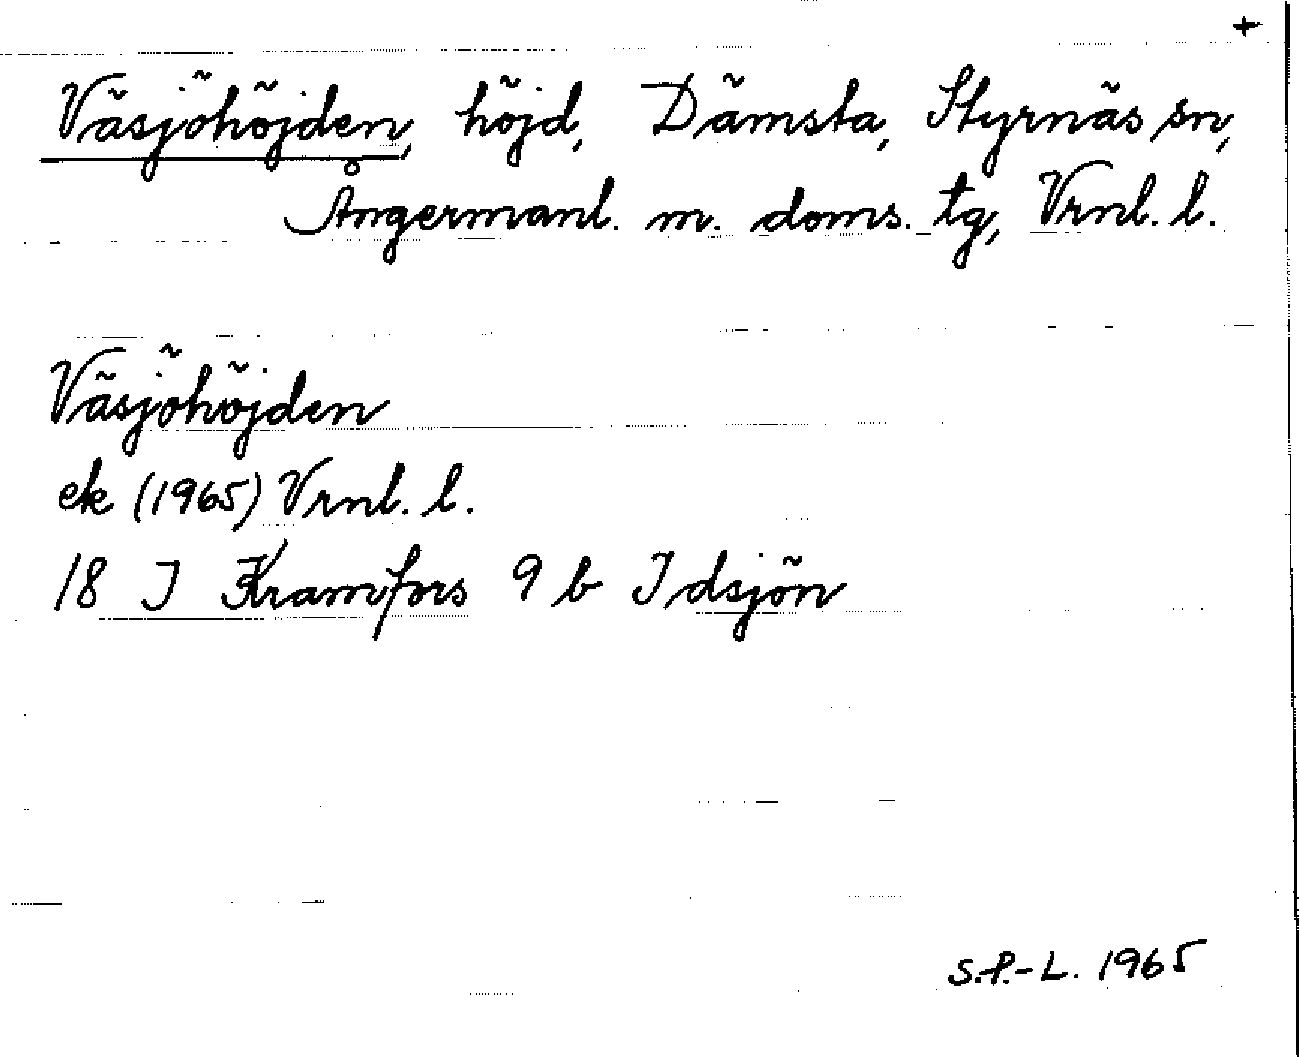 +
Väsjöhöjden, höjd, Dämsta, Styrnäs sn,
Ångermanl. m. doms. tg, Vrnl. l.
Väsjöhöjden
ek (1965) Vrnl. l.
18 I Kramfors 9 b Idsjön
S.P.-L. 1965